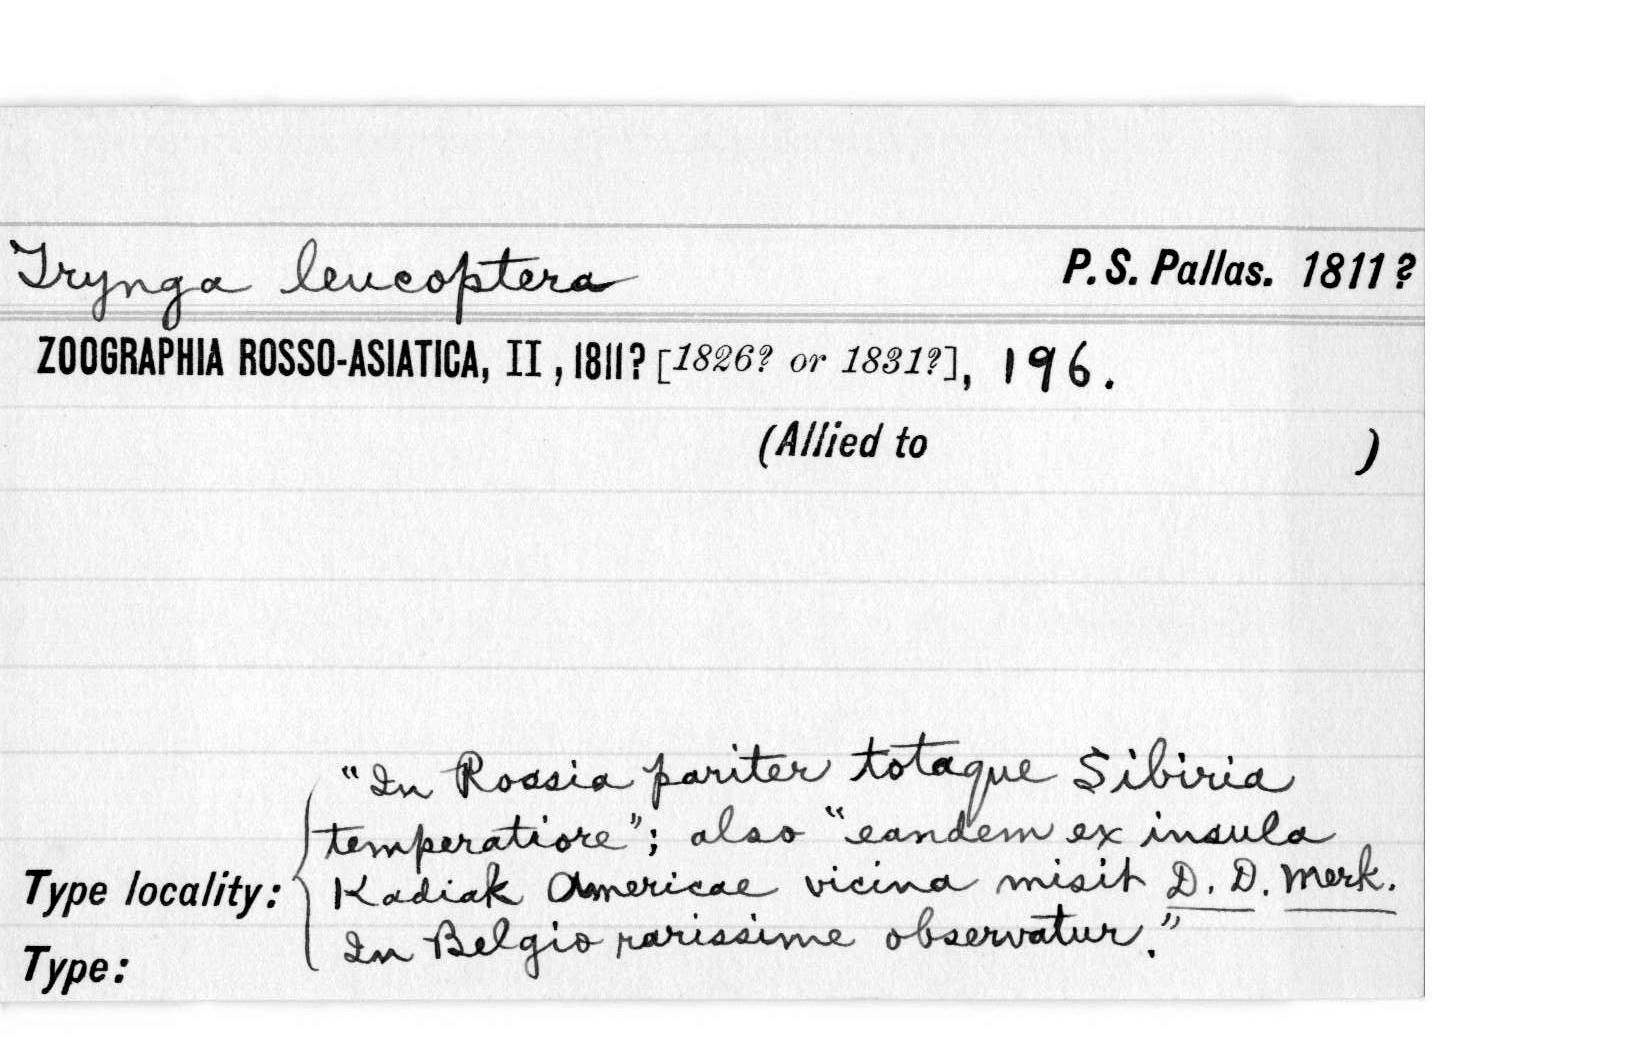 Trynga leucoptera P. S. Pallas. 1811?
ZOOGRAPHIA ROSSO-ASIATICA, II, 1811? [1826? or 1831?], 196.
(Allied to )
"In Rossia pariter totaque Sibiria
temperatiore"; also "eandem ex insula
Type locality: Kadiak Americae vicina misit D. D. Merk.
In Belgio rarissime observatur."
Type: